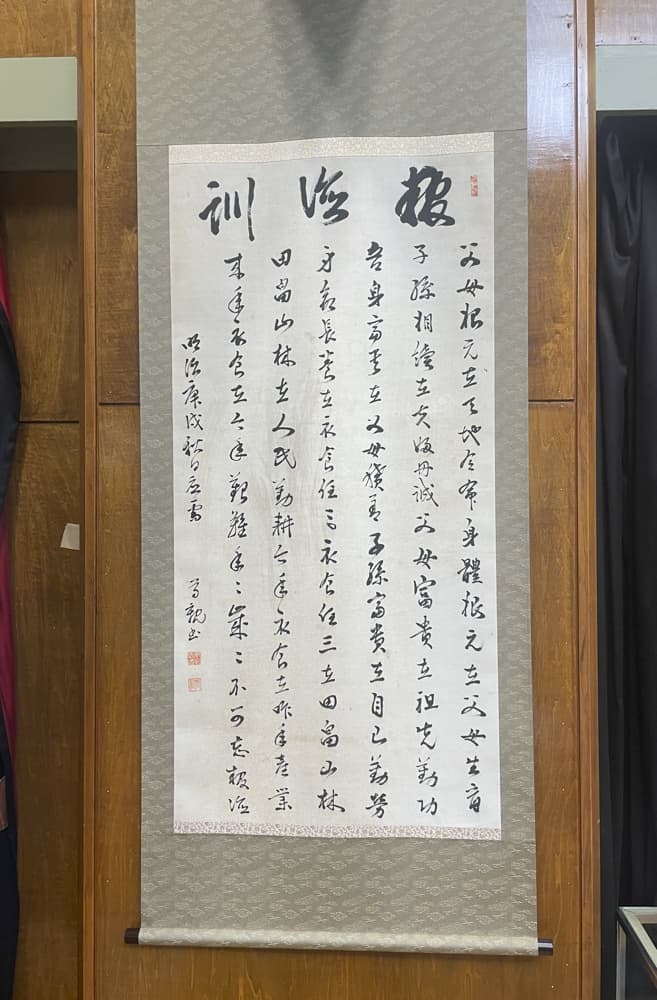 報徳訓
父母根元在天地令命身體根元在父母生育
子孫相續在夫婦丹誠父母富貴在祖先勤功
吾身富貴在父母積善子孫富貴在自己勤勞
身命長養在衣食住三衣食住三在田畠山林
田畠山林在人民勤耕今年衣食在昨年産業
来年衣食在今年艱難年々歳々不可忘報徳
明治庚戌秋日応需 尊親書